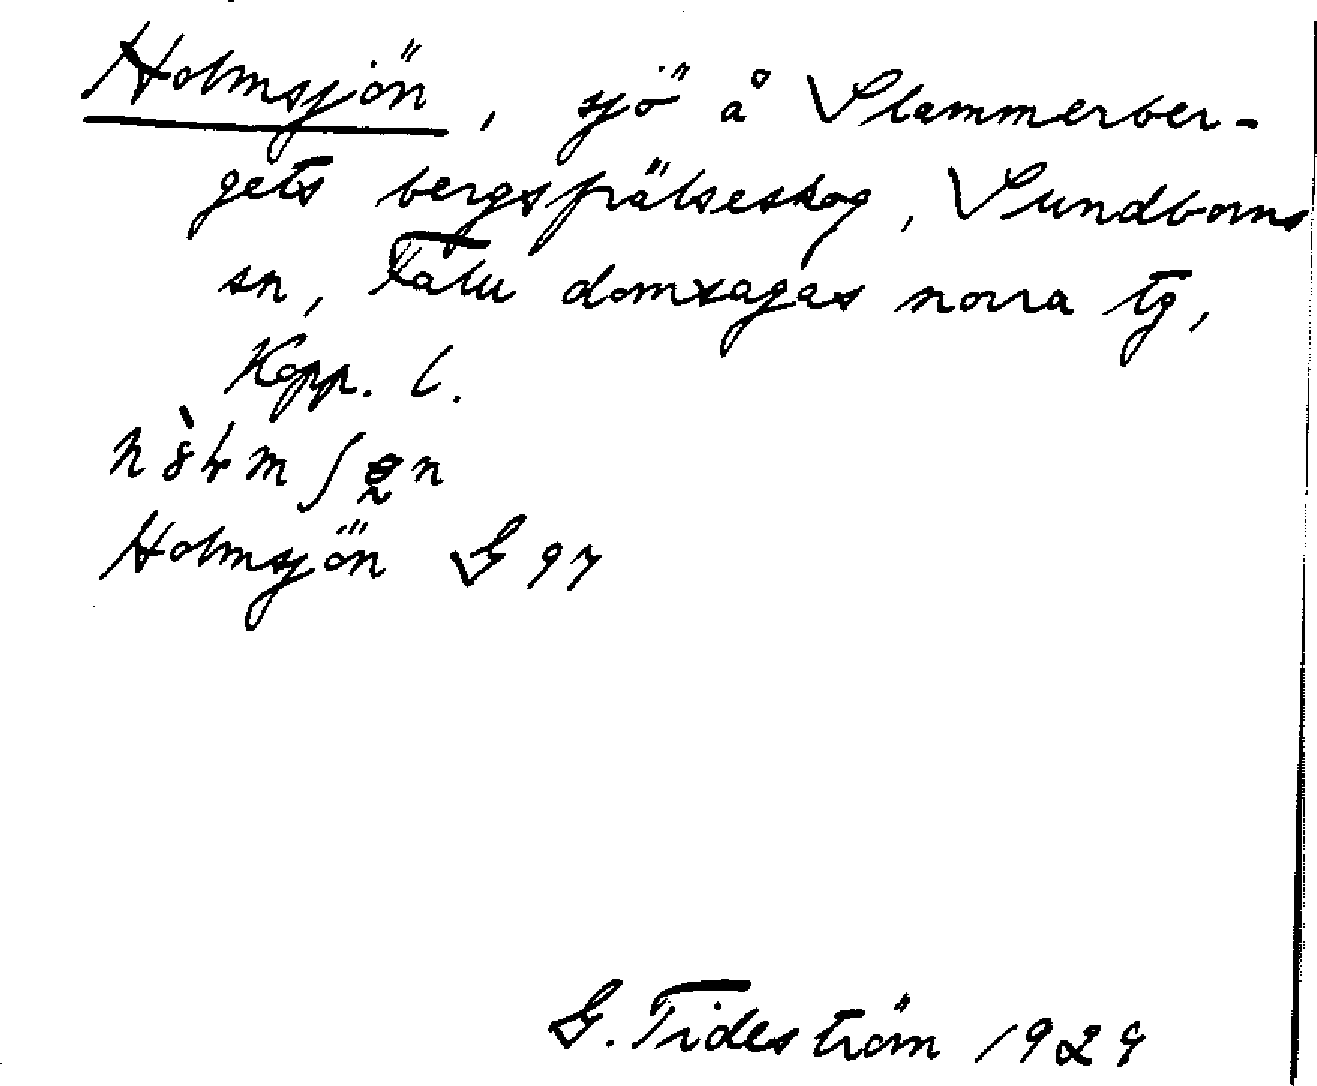 Holmsjön, sjö å Slammerber-
gets bergsfrälseskog, Sundborns
sn, Falu domsagas norra tg,
Kopp. l.
Holmsjön G 97
G. Tideström 1929